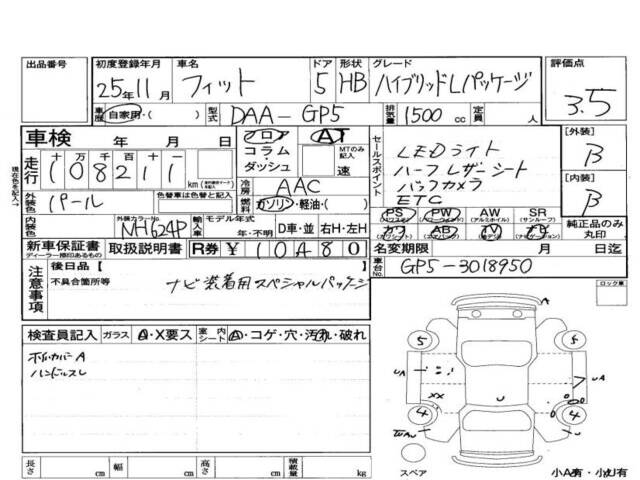 出品番号 初度登録年月 車名 ドア 形状 グレード 評価点
25年11月 フィット 5 HB ハイブリッドLパッケージ 3.5
車歴 自家用・( ) 型式 DAA-GP5 排気量 1500 cc 定員 人
車検 年 月 日 フロア AT セールスポイント [外装]
走行 十 万 千 百 十 一 コラム・ダッシュ MTのみ記入 速 LEDライト B
108211 km ハーフレザーシート
冷房 AAC バックカメラ [内装]
外装色 パール 色替車は色替と記入 燃料 ガソリン・軽油・( ) ETC B
内装色 外装カラーNo. NH624P 輸入車 モデル年式 年・不明 D車・並 右H・左H
PS PW AW SR 純正品のみ丸印
(パワステ) (アルミホイル) (サンルーフ)
カワ AB TV ナビ
(エアバック) (ナビゲーション)
新車保証書 取扱説明書 R券 ¥10480 名変期限 月 日迄
ディーラー捺印あるもの 車台No. GP5-3018950
現在色を記入→
注意事項 後日品[ ]
不具合箇所等 ナビ装着用スペシャルパッケージ
ロック車
検査員記入 ガラス A・X要ス 室内シート A・コゲ・穴・汚れ・破れ
ホイルカバーA
ハンドルスレ
A
5 5
UA UA
XX U
4 4
スペア 小A有・小U有
長さ cm 幅 cm 高さ cm 積載量 kg